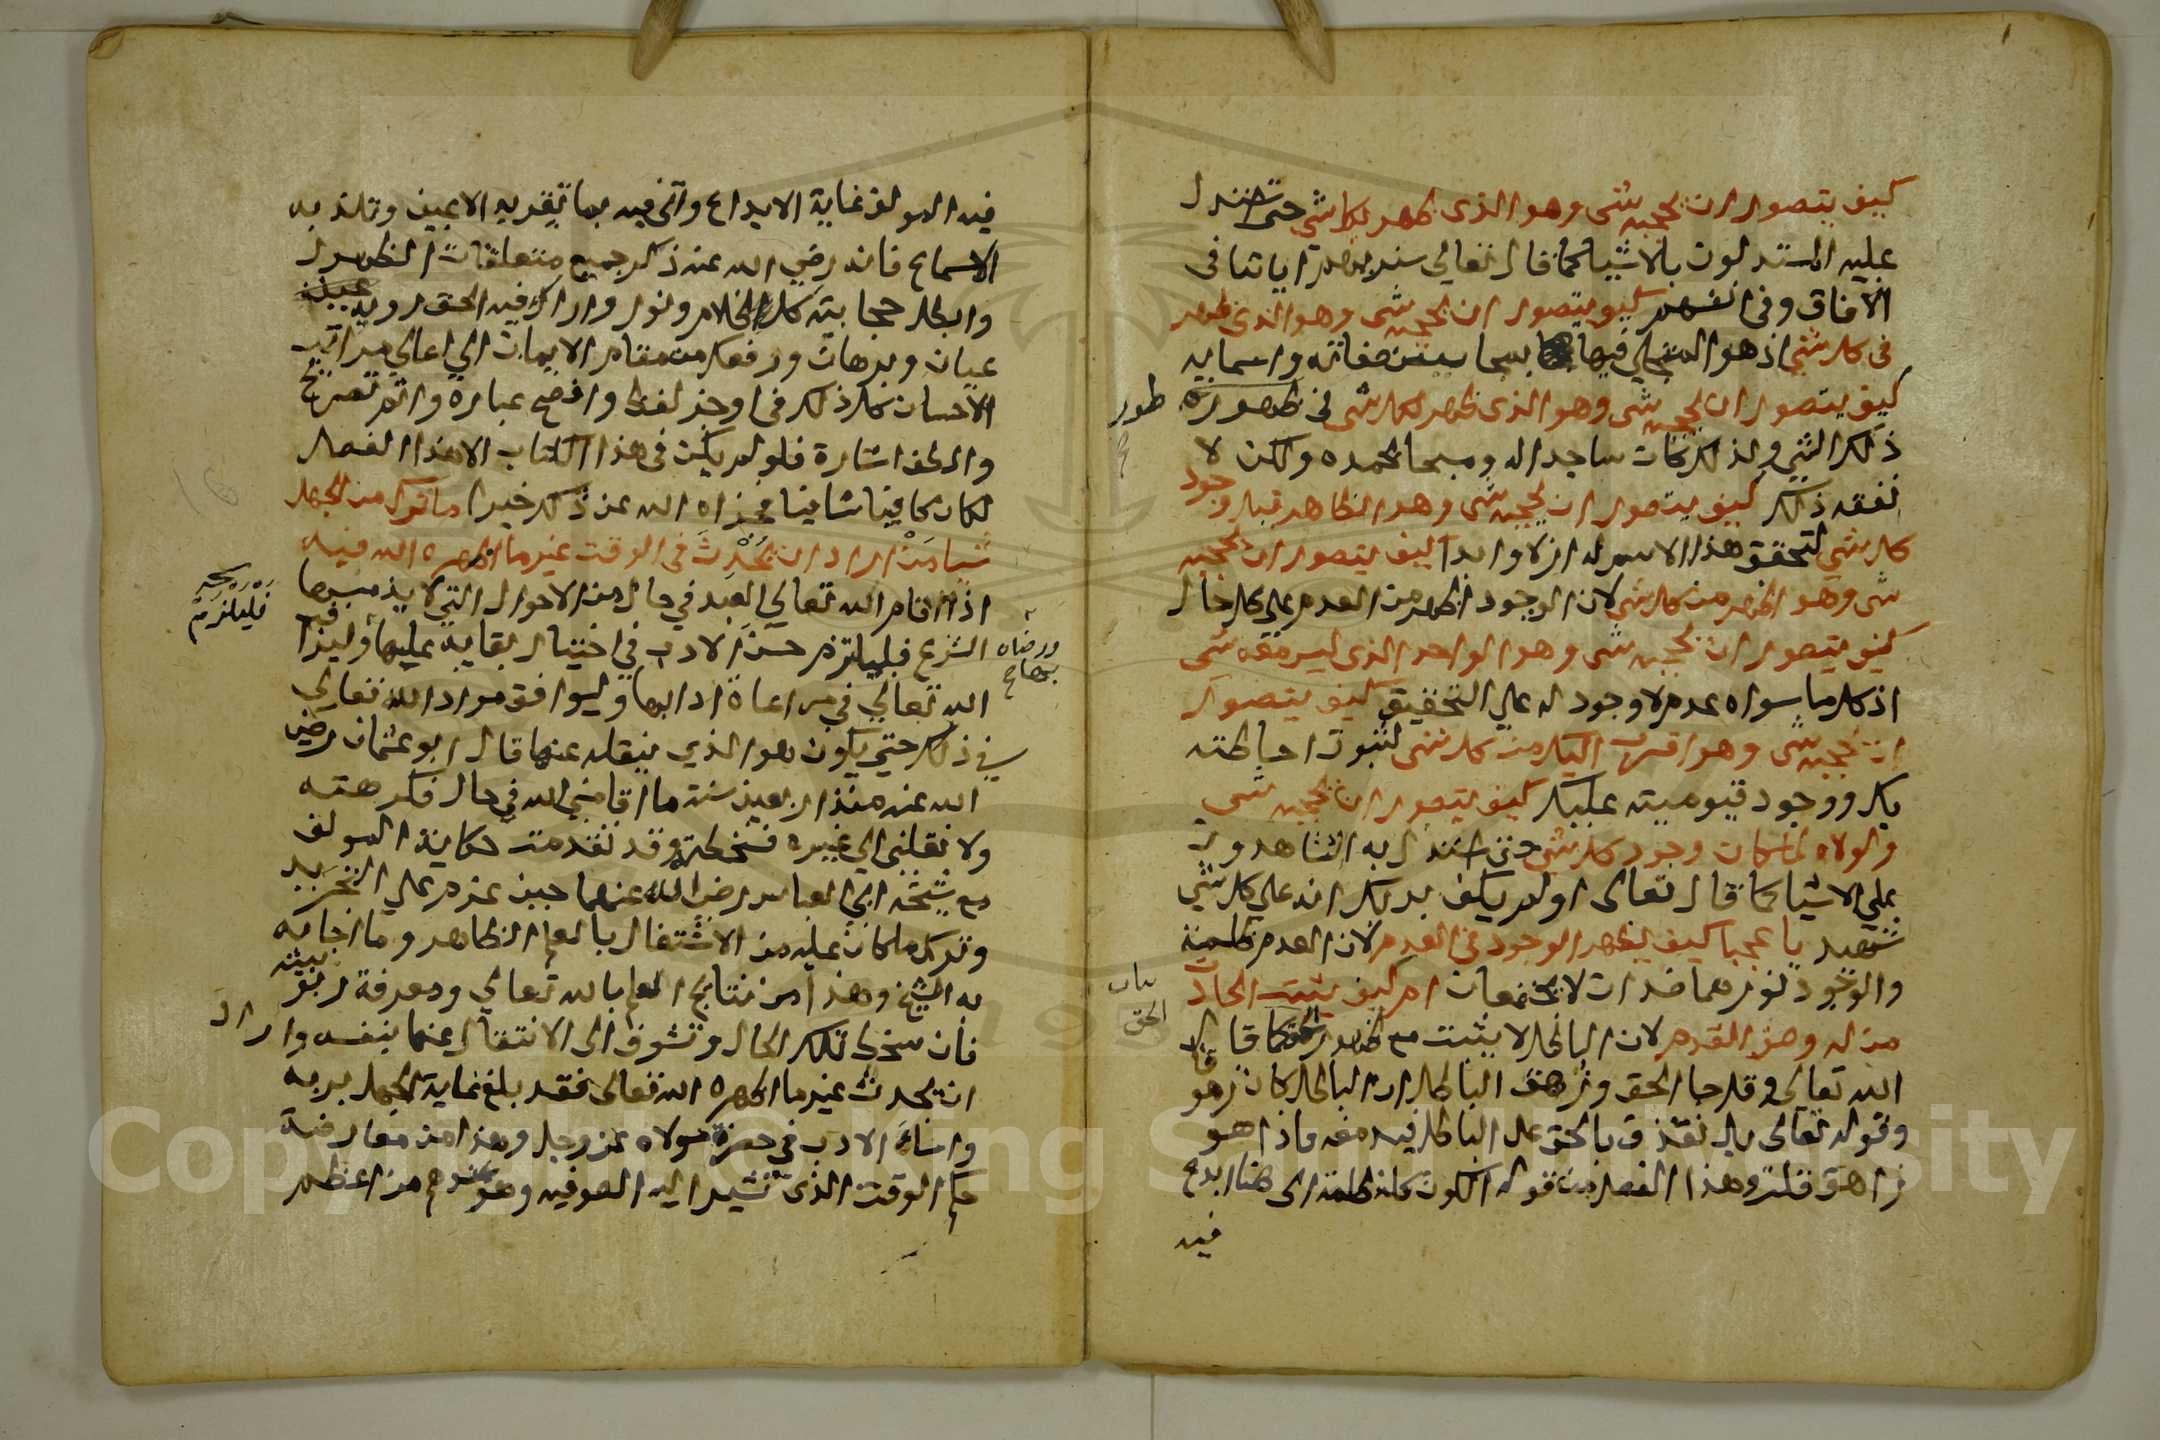 كيف يتصور ان يحجبه شي وهو الذي ظهر بكل شي حتى استدل
عليه المستدلون بالاشيا كما قال تعالي سنريهم اياتنا في
الافاق وفي انفسهم كيف يتصور ان يحجبه شي وهو الذي ظهر
في كل شي اذ هو المتجلي فيها بمحاسن صفاته واسمايه
كيف يتصور ان يحجبه شي وهو الذي ظهر لكل شي في طهوره
طور
ذلك الشي ولذلك كان ساجدا له ومسبحا بحمده ولكن لا
نفقه ذلك كيف يتصور ان يحجبه شي وهو الظاهر قبل وجود
كل شي لتحقق هذا الاسم له ازلا وابدا كيف يتصور ان يحجبه
شي وهو اظهر من كل شي لان الوجود اظهر من العدم على كل حال
كيف يتصور ان يحجبه شي وهو الواحد الذي ليس معه شي
اذ كل ما سواه عدم لا وجود له علي التحقيق كيف يتصور
ان يحجبه شي وهو اقرب اليك من كل شي لثبوت احاطته
بك ووجود قيوميته عليك كيف يتصور ان يحجبه شي
ولولاه لما كان وجود كل شي حتى استدل به الشاهدون
علي الاشيا كما قال تعالى اولم يكف بربك انه علي كل شي
شهيد يا عجبا كيف يظهر الوجود في العدم لان العدم ظلمة
والوجود نور هما ضدان لا يجتمعان ام كيف يثبت الحادث
مع من له وصف القدم لان الباطل لا يثبت مع ظهور الحق كما قال
بيان
الحق
الله تعالى وقل جا الحق وزهق الباطل ان الباطل كان زهوقا
وقوله تعالى بل نقذف بالحق على الباطل فيدمغه فاذا هو
زاهق قلت وهذا الفصل من قوله الكون كله ظلمة الى هنا ابدع
فيه
فيه المولف غاية الابداع واتى فيه بما تقر به الاعين وتلذ به
الاسماع فانه رضي الله عنه ذكر جميع متعلقات الظهور
وابطل حجابية كل ظلام ونور واراك فيه الحق روية
عيان وبرهان ورفعك من مقام الايمان الي اعالي مراتب
الاحسان كل ذلك في اوجز لفظ وافصح عبارة واتم تصريح
والطف اشارة فلو لم يكن في هذا الكتاب الا هذا الفصل
لكان كافيا شافيا فجزاه الله عن ذلك خيرا ما ترك من الجهل
شيا من اراد ان يحدث في الوقت غير ما اظهره الله فيه
اذا اقام الله تعالي العبد في حال من الاحوال التي لا يذمها
الشرع فليلتزم حسن الادب في اختيار بقايه عليها وليراقب
ورضاه
بها صح
فليلتزم
الله تعالي في مراعاة ادابها وليوافق مراد الله تعالي
في ذلك حتي يكون هو الذي ينقله عنها قال ابو عثمان رضي
الله عنه منذ اربعين سنة ما اقامني الله في حال فكرهته
ولا نقلني الي غيره فسخطته وقد تقدمت حكاية المولف
مع شيخه ابي العباس رضي الله عنهما حين عزم علي التجريد
وترك ما كان عليه من الاشتغال بالعلم الظاهر وما اجابه
به الشيخ وهذا من نتايج العلم بالله تعالي ومعرفة ربوبيته
فان سخط تلك الحال وتشوف الى الانتقال عنها بنفسه واراد
ان يحدث غير ما اظهره الله تعالى فقد بلغ غاية الجهل بربه
واساء الادب في حضرة مولاه عز وجل وهذا من معارضة
حكم الوقت الذي تشير اليه الصوفيه وهو عندهم من اعظم
Copyright © King Saud University